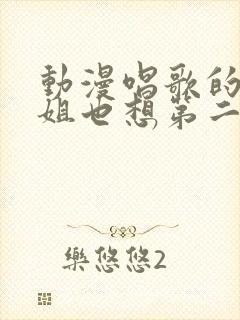 動漫唱歌的
姐也想第二
樂悠悠2